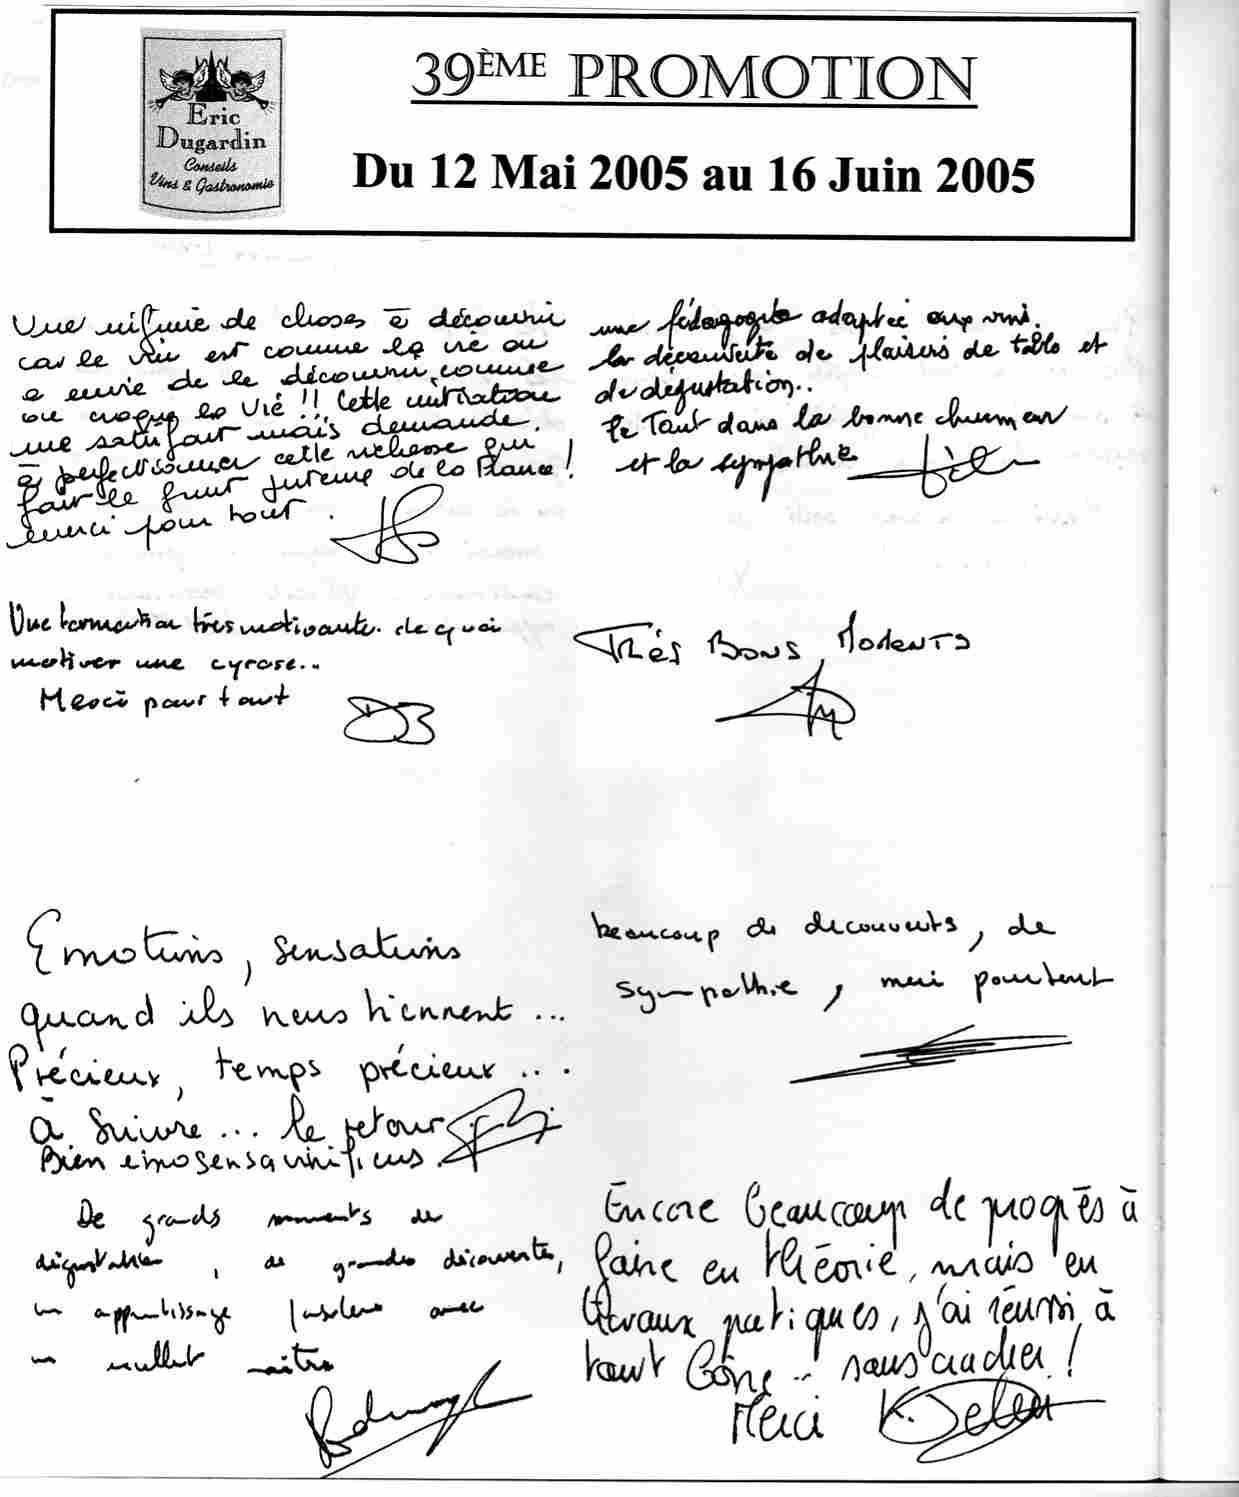 Eric
Dugardin
Conseils
Vins & Gastronomie
39ÈME PROMOTION
Du 12 Mai 2005 au 16 Juin 2005
Une infinie de choses à découvrir
car le vin est comme la vie on
a envie de le découvrir, comme
on croque la vie !! Cette initiation
me satisfait mais demande
à perfectionner cette richesse qui
fait le fruit juteux de la France !
merci pour tout.
une pédagogie adaptée aux vins.
la découverte de plaisirs de table et
de dégustation..
le Tout dans la bonne humeur
et la sympathie
Une formation très motivante. de quoi
motiver une cyrose...
Merci pour tout
DB
Très Bons Moments
Emotions, sensations
quand ils nous tiennent...
Précieux, temps précieux...
à suivre... le retour
Bien emosensavinificus.
beaucoup de decouverts, de
sympathie, merci pour tout
De grands moments de
dégustation, de grandes découvertes,
un apprentissage avec
un maître
Encore beaucoup de progrès à
faire en théorie, mais en
travaux pratiques, j'ai réussi à
tout boire... sans cracher !
Merci K.